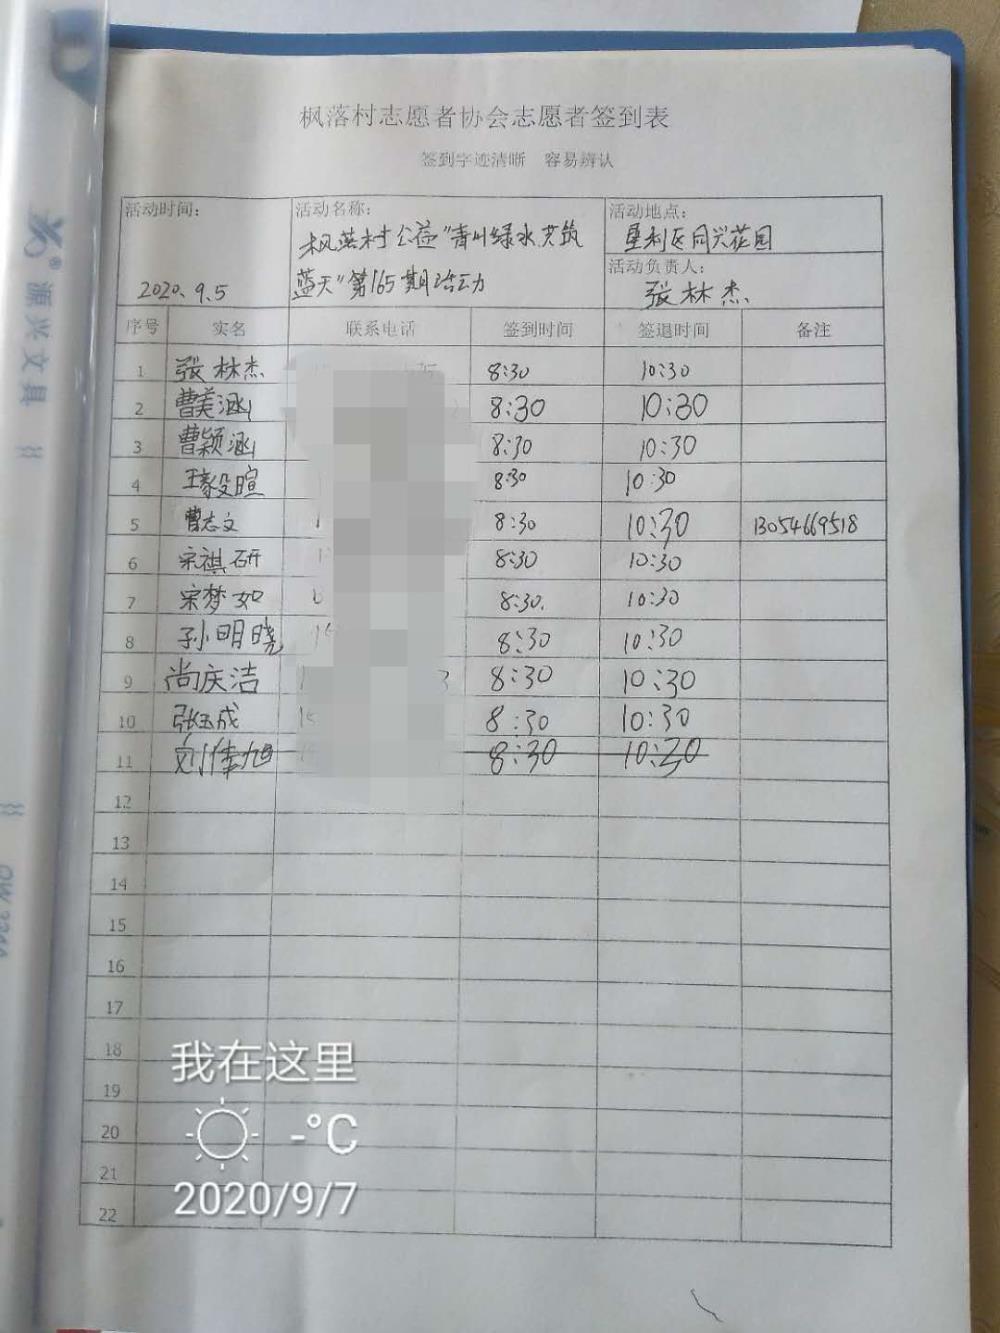 枫落村志愿者协会志愿者签到表
签到字迹清晰 容易辨认
活动时间: 活动名称: 活动地点:
枫落村公益"青山绿水共筑 垦利区同兴花园
活动负责人:
2020.9.5 蓝天"第165期活动 张林杰
序号 实名 联系电话 签到时间 签退时间 备注
1 张林杰 8:30 10:30
2 曹美涵 8:30 10:30
3 曹颖涵 8:30 10:30
4 8:30 10:30
5 曹志文 8:30 10:30 13054669518
6 宋祺研 8:30 10:30
7 宋梦如 8:30. 10:30
8 孙明晓 8:30 10:30
9 尚庆洁 8:30 10:30
10 张玉成 8:30 10:30
11 8:30 10:30
12
13
14
15
16
17
18
19
20
21
22
我在这里
-°C
2020/9/7
源兴文具